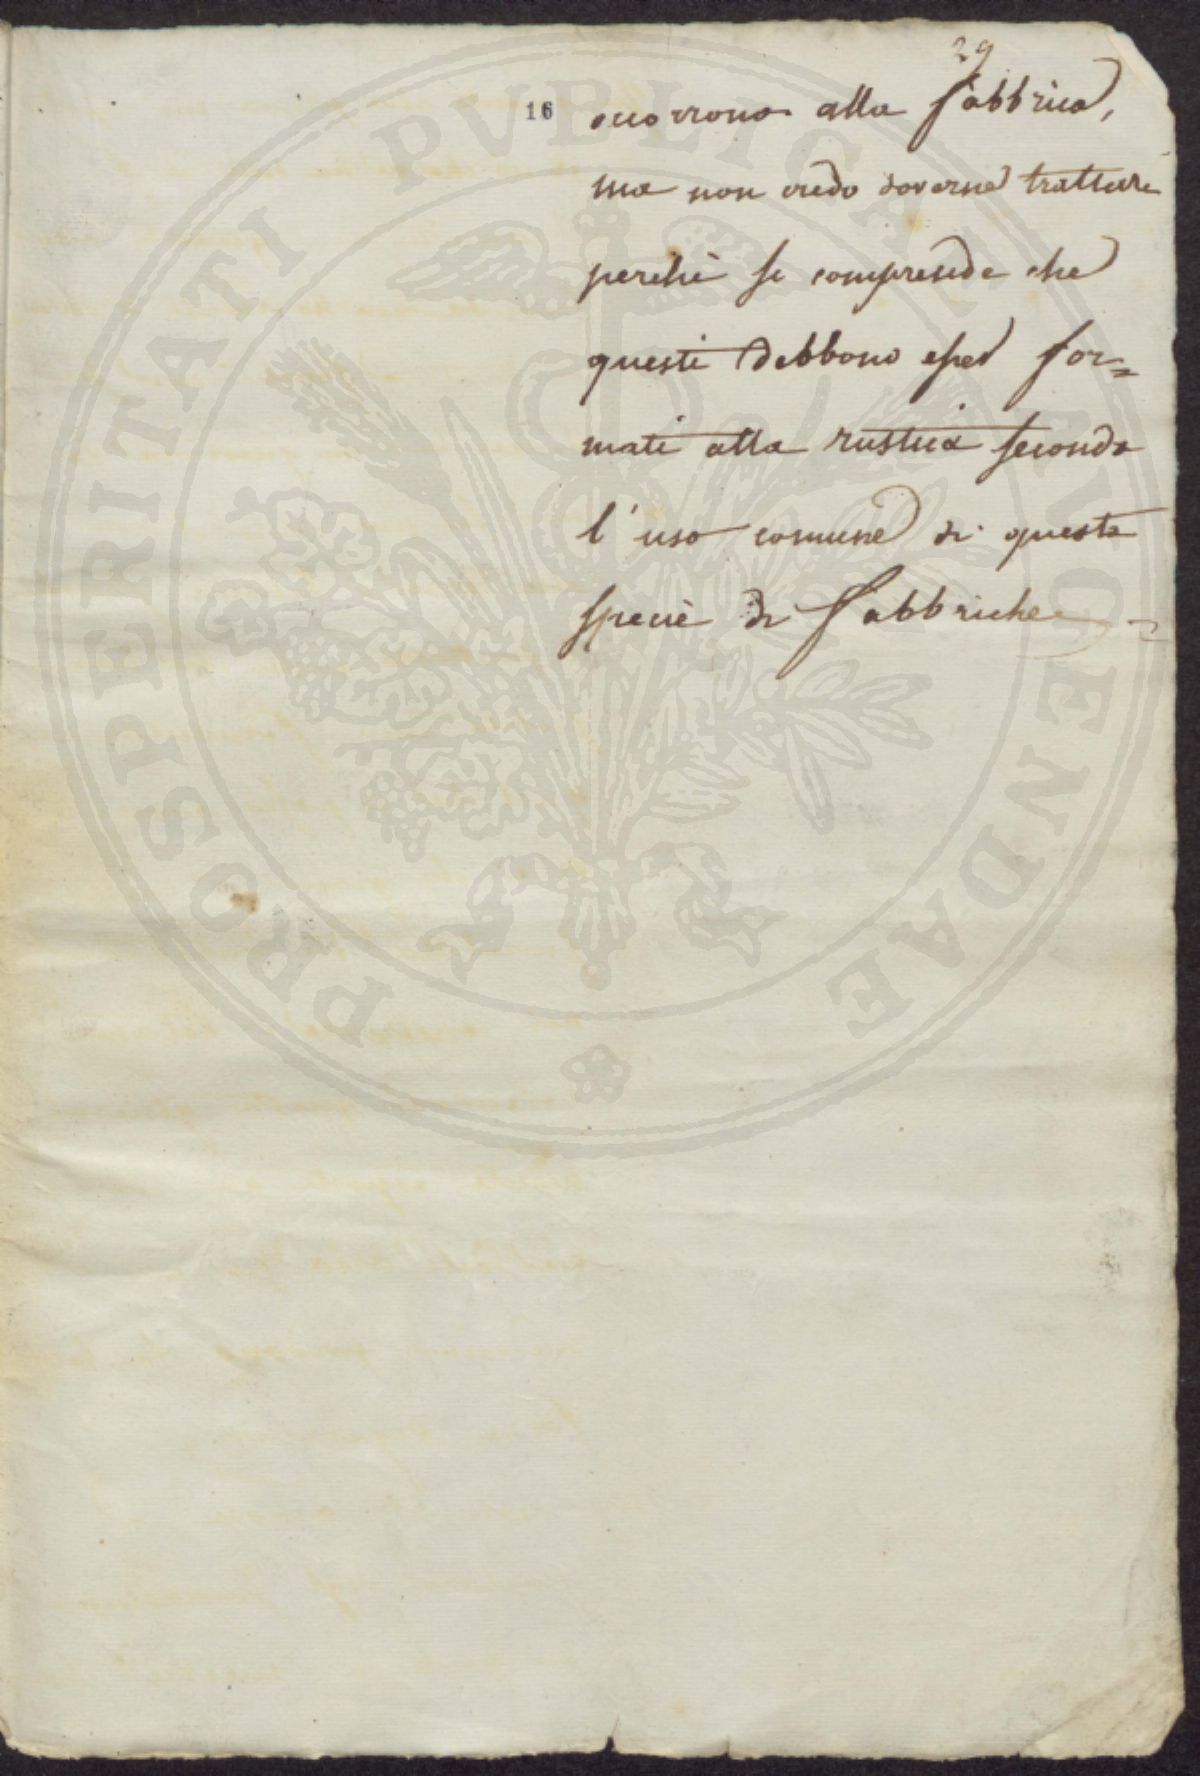 29
16
occorrono alla Fabbrica,
ma non credo doverne trattare
perchè si comprende che
questi debbono esser for=
mati alla rustica secondo
l'uso comune di questa
specie di Fabbriche
PROSPERITATI PVBLICAE AVGENDAE